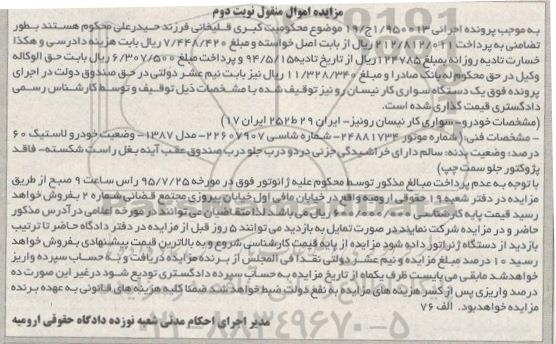 مزایده اموال منقول نوبت دوم
به موجب پرونده اجرائی ۹۵۰۰۱۳/ج/۱۹ موضوع محکومیت کبری قلیخانی فرزند حیدرعلی محکوم هستند بطور
تضامنی به پرداخت ۲۱۲/۸۱۲/۰۱۱ ریال از بابت اصل خواسته و مبلغ ۷/۴۴۸/۴۲۰ ریال بابت هزینه دادرسی و هکذا
خسارت تادیه روزانه بمبلغ ۱۲۴۷۸۵ ریال از تاریخ تادیه ۹۴/۵/۱۵ و پرداخت مبلغ ۶/۳۰۷/۵۰۰ ریال بابت حق الوکاله
وکیل در حق محکوم له بانک صادرا و مبلغ ۱۱/۳۲۸/۳۴۰ ریال نیز بابت نیم عشر دولتی در حق صندوق دولت در اجرای
پرونده فوق یک دستگاه سواری کار نیسان رونیز توقیف شده با مشخصات ذیل توقیف و توسط کارشناس رسمی
دادگستری قیمت گذاری شده است.
(مشخصات خودرو- سواری کار نیسان رونیز- ایران ۲۹ ط ۲۵۲ ایران ۱۷)
- مشخصات فنی: (شماره موتور ۲۴۸۸۱۷۳۴- شماره شاسی ۲۲۶۰۷۹۰۷- مدل ۱۳۸۷- وضعیت خودرو لاستیک ۶۰
درصد؛ وضعیت بدنه: سالم دارای خراشیدگی جزئی در دو درب جلو درب صندوق عقب آینه بغل راست شکسته- فاقد
پژوکتور جلو سمت چپ)
با توجه به عدم پرداخت مبالغ مذکور توسط محکوم علیه ژانوتور فوق در مورخه ۹۵/۷/۲۵ راس ساعت ۹ صبح از طریق
مزایده در دفتر شعبه ۱۹ حقوقی ارومیه واقع در خیابان مافی اول خیابان پیروزی مجتمع قضائی شماره ۲ بفروش خواهد
رسید قیمت پایه کارشناسی ریال می باشد، لذا متقاضیان می توانند در مورخه اعلامی در آدرس مذکور
حاضر و در مزایده شرکت نمایند در صورت تمایل به بازدید می توانند ۵ روز قبل از مزایده در دفتر دادگاه حاضر تا ترتیب
بازدید از دستگاه ژنراتور داده شود مزایده از پایه قیمت کارشناسی شروع و به بالاترین قیمت پیشنهادی بفروش خواهد
رسید ۱۰ درصد مبلغ مزایده و نیم عشر دولتی نقدا فی المجلس از برنده مزایده دریافت و به حساب سپرده واریز
خواهد شد مابقی می بایست ظرف یکماه از تاریخ مزایده به حساب سپرده دادگستری تودیع شود در غیر این صورت ده
درصد واریزی پس از کسر هزینه های مزایده به نفع دولت ضبط خواهد شد ضمنا کلیه هزینه های قانونی به عهده برنده
مزایده خواهد بود. الف ۷۶
مدیر اجرای احکام مدنی شعبه نوزده دادگاه حقوقی ارومیه
۰۲۱-۸۸۳۴۹۶۷۰-۵